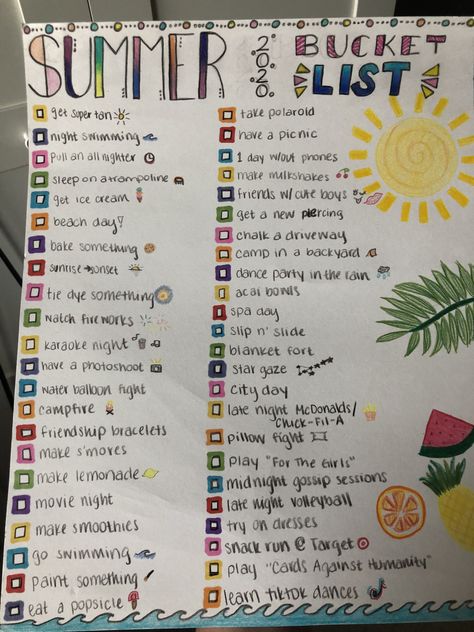 SUMMER 2020 BUCKET LIST
get super tan
night swimming
Pull an all nighter
sleep on a trampoline
get ice cream
beach day!
bake something
sunrise → sunset
tie dye something
watch fireworks
karaoke night
have a photoshoot
water balloon fight
campfire
friendship bracelets
make s'mores
make lemonade
movie night
make smoothies
go swimming
paint something
eat a popsicle
take polaroid
have a picnic
1 day w/out phones
make milkshakes
friends w/ cute boys
get a new piercing
chalk a driveway
camp in a backyard
dance party in the rain
acai bowls
spa day
slip n' slide
blanket fort
star gaze
City day
late night McDonalds/
Chick-Fil-A
pillow fight
play "For The Girls"
midnight gossip sessions
late night volleyball
try on dresses
snack run @ Target
play "Cards Against Humanity"
learn tiktok dances